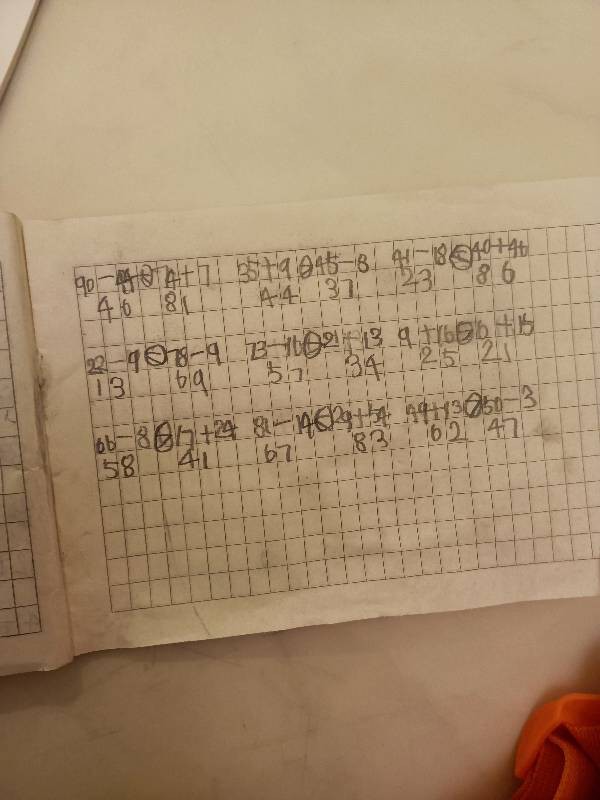 90-44 < 74+7 35+9 > 45-8 41-18 < 40+46
46 81 44 37 23 86
22-9 < 78-9 73-16 > 21+13 9+16 > 6+15
13 69 57 34 25 21
66-8 > 17+24 81-14 < 29+54 49+13 > 50-3
58 41 67 83 62 47